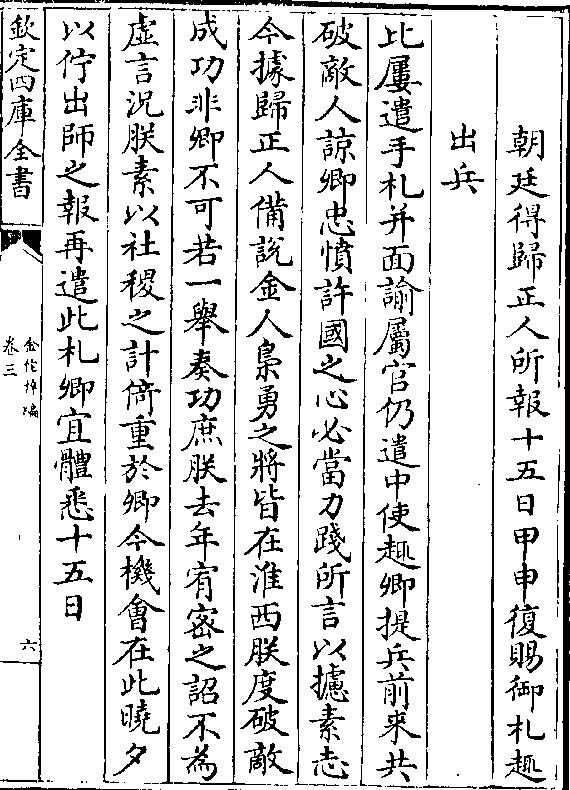 朝廷得歸正人所報十五日甲申復賜御札趣
出兵
比屢遣手札并面諭屬官仍遣中使趣卿提兵前來共
破敵人諒卿忠憤許國之心必當力踐所言以攄素志
今據歸正人備說金人梟勇之將皆在淮西朕度破敵
成功非卿不可若一舉奏功庶朕去年宥密之詔不為
虛言況朕素以社稷之計倚重於卿今機會在此曉夕
以佇出師之報再遣此札卿宜體悉十五日
欽定四庫全書
金佗稡編
卷三
六